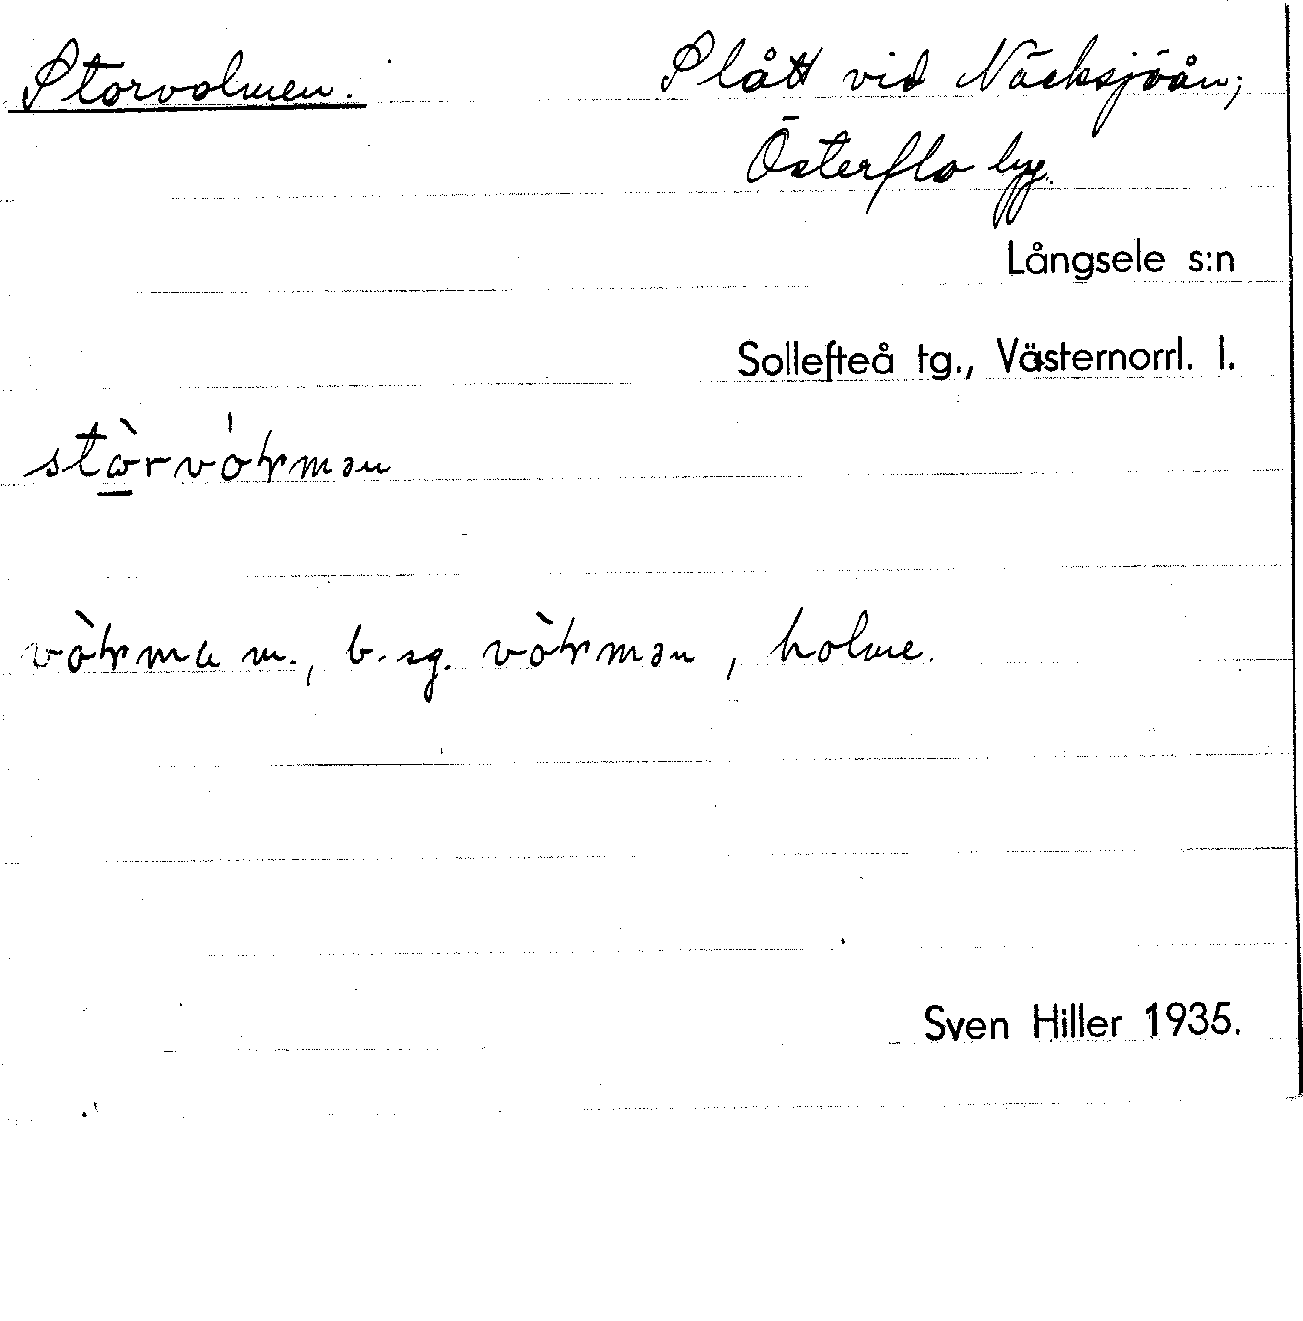 Storvolmen.
Slått vid Näcksjöån;
Österflo by.
Långsele s:n
Sollefteå tg., Västernorrl. l.
stòrvóƚmən
vòƚma m., b. sg. vòƚmən, holme.
Sven Hiller 1935.